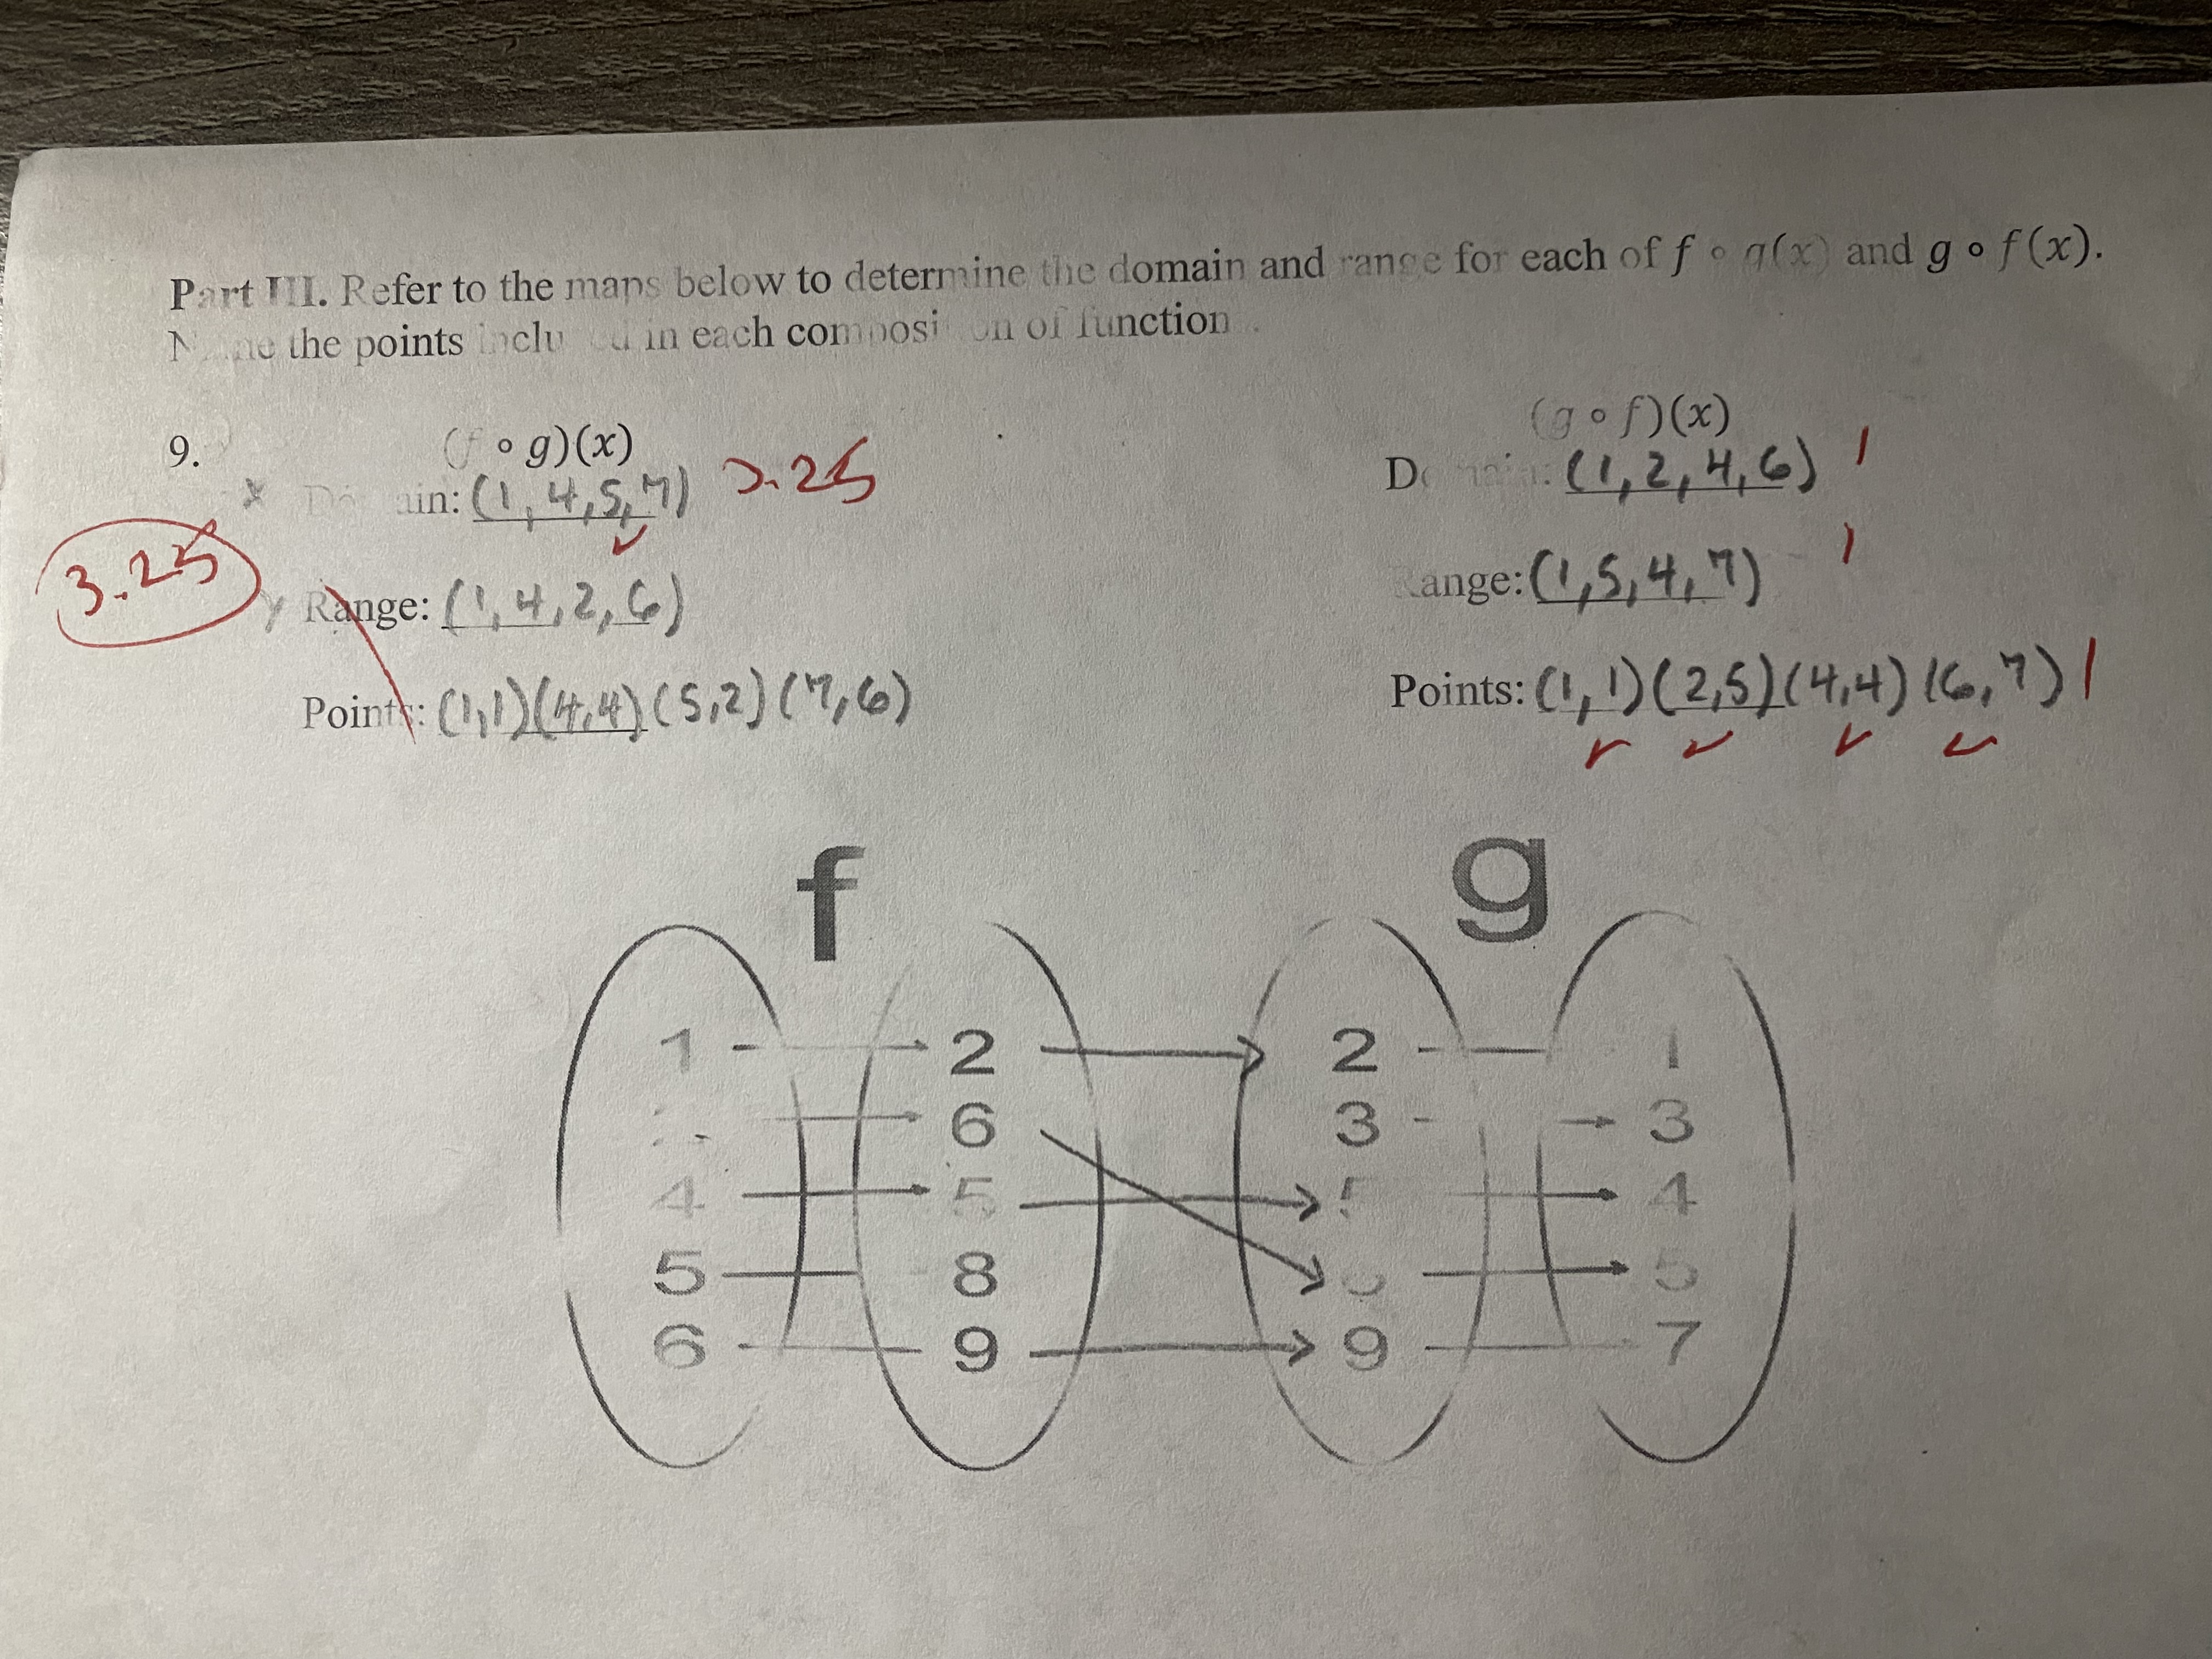 Part III. Refer to the maps below to determine the domain and range for each of f ∘ g(x) and g ∘ f(x).
the points in each of function
9. (f ∘ g)(x)
(g ∘ f)(x)
x Domain: (1, 4, 5, 7) .25
Domain: (1, 2, 4, 6) 1
3.25
y Range: (1, 4, 2, 6)
Range: (1, 5, 4, 7) 1
Points: (1,1)(4,4)(5,2)(7,6)
Points: (1,1)(2,5)(4,4)(6,7) 1
f g
1 2 2 1
6 3 3
4 5 5 4
5 8 5
6 9 9 7